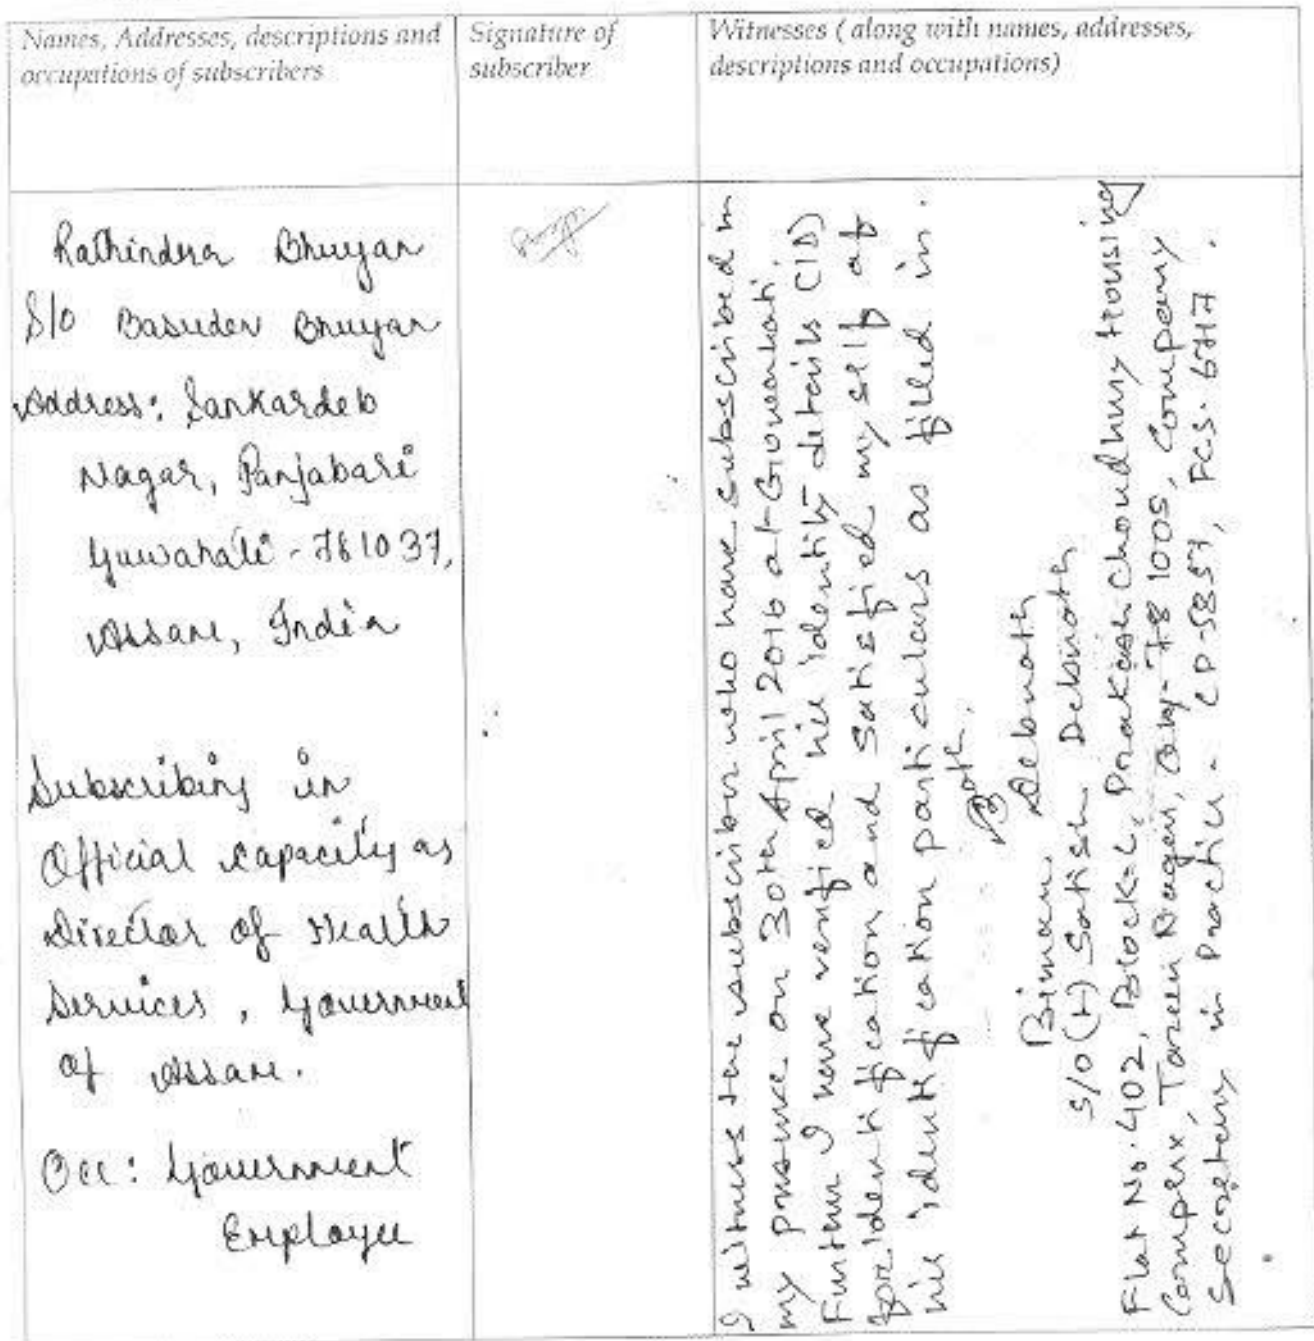 Names, Addresses, descriptions and
occupations of subscribers
Signature of
subscriber
Witnesses ( along with names, addresses,
descriptions and occupations)
Rathindra Bhuyan
S/o Basudev Bhuyan
Address: Sankardeb
Nagar, Panjabari
Guwahati - 781037,
Assam, India
Subscribing in
Official capacity as
Director of Health
Services, Government
of Assam.
Occ: Government
Employee
I witness the subscriber who have subscribed in
my presence on 30th April 2016 at Guwahati
Further I have verified his identity details (ID)
for identification and satisfied my self of
his identification particulars as filled in.
Biman Debnath
S/o (L) Satish Debnath
Flat No. 402, Block-C, Prakash Choudhury Housing
Complex, Tarun Nagar, Ghy-781005, Company
Secretary in Practice - CP-5857, FCS. 6717.